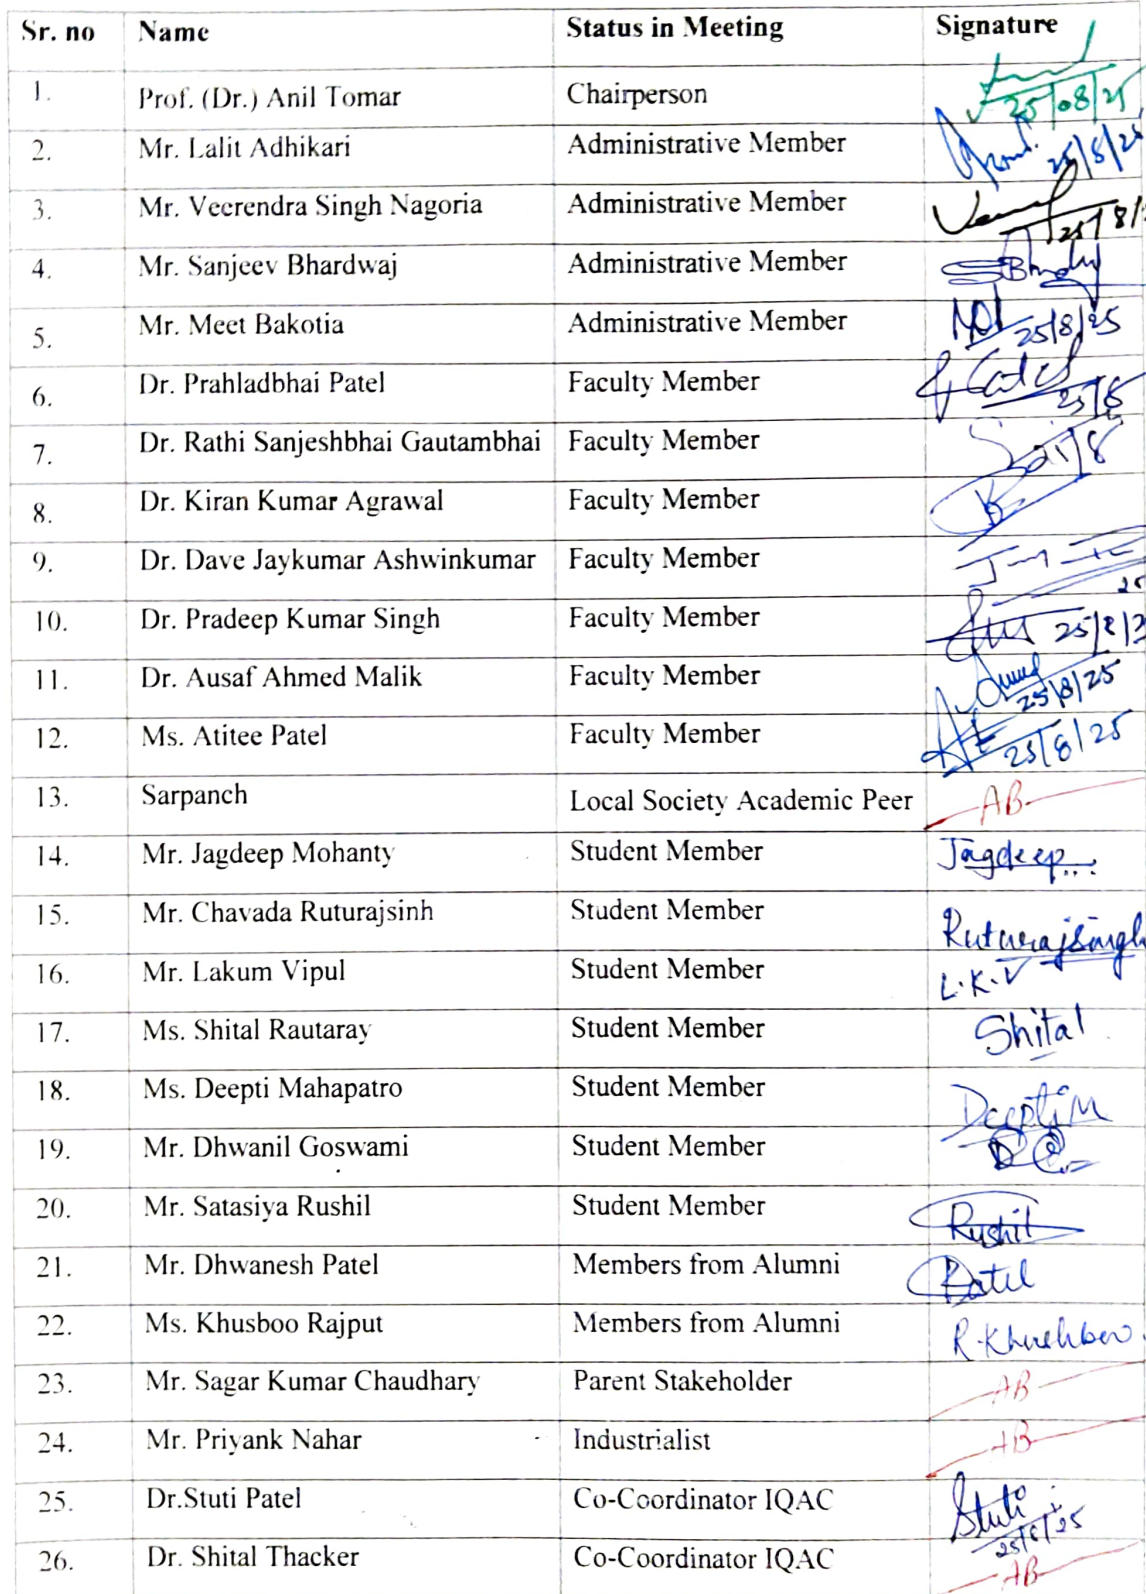 Sr. no Name Status in Meeting Signature
1. Prof. (Dr.) Anil Tomar Chairperson 25/08/25
2. Mr. Lalit Adhikari Administrative Member 25/8/25
3. Mr. Veerendra Singh Nagoria Administrative Member 25/8/2
4. Mr. Sanjeev Bhardwaj Administrative Member
5. Mr. Meet Bakotia Administrative Member 25/8/25
6. Dr. Prahladbhai Patel Faculty Member 25/8
7. Dr. Rathi Sanjeshbhai Gautambhai Faculty Member
8. Dr. Kiran Kumar Agrawal Faculty Member
9. Dr. Dave Jaykumar Ashwinkumar Faculty Member
10. Dr. Pradeep Kumar Singh Faculty Member 25/8/2
11. Dr. Ausaf Ahmed Malik Faculty Member 25/8/25
12. Ms. Atitee Patel Faculty Member 25/8/25
13. Sarpanch Local Society Academic Peer AB
14. Mr. Jagdeep Mohanty Student Member Jagdeep...
15. Mr. Chavada Ruturajsinh Student Member Ruturajsingh
16. Mr. Lakum Vipul Student Member L.K.V
17. Ms. Shital Rautaray Student Member Shital
18. Ms. Deepti Mahapatro Student Member Deepti M
19. Mr. Dhwanil Goswami Student Member
20. Mr. Satasiya Rushil Student Member Rushil
21. Mr. Dhwanesh Patel Members from Alumni Patel
22. Ms. Khusboo Rajput Members from Alumni R. Khushboo
23. Mr. Sagar Kumar Chaudhary Parent Stakeholder AB
24. Mr. Priyank Nahar Industrialist AB
25. Dr.Stuti Patel Co-Coordinator IQAC Stuti 25/8/25
26. Dr. Shital Thacker Co-Coordinator IQAC AB